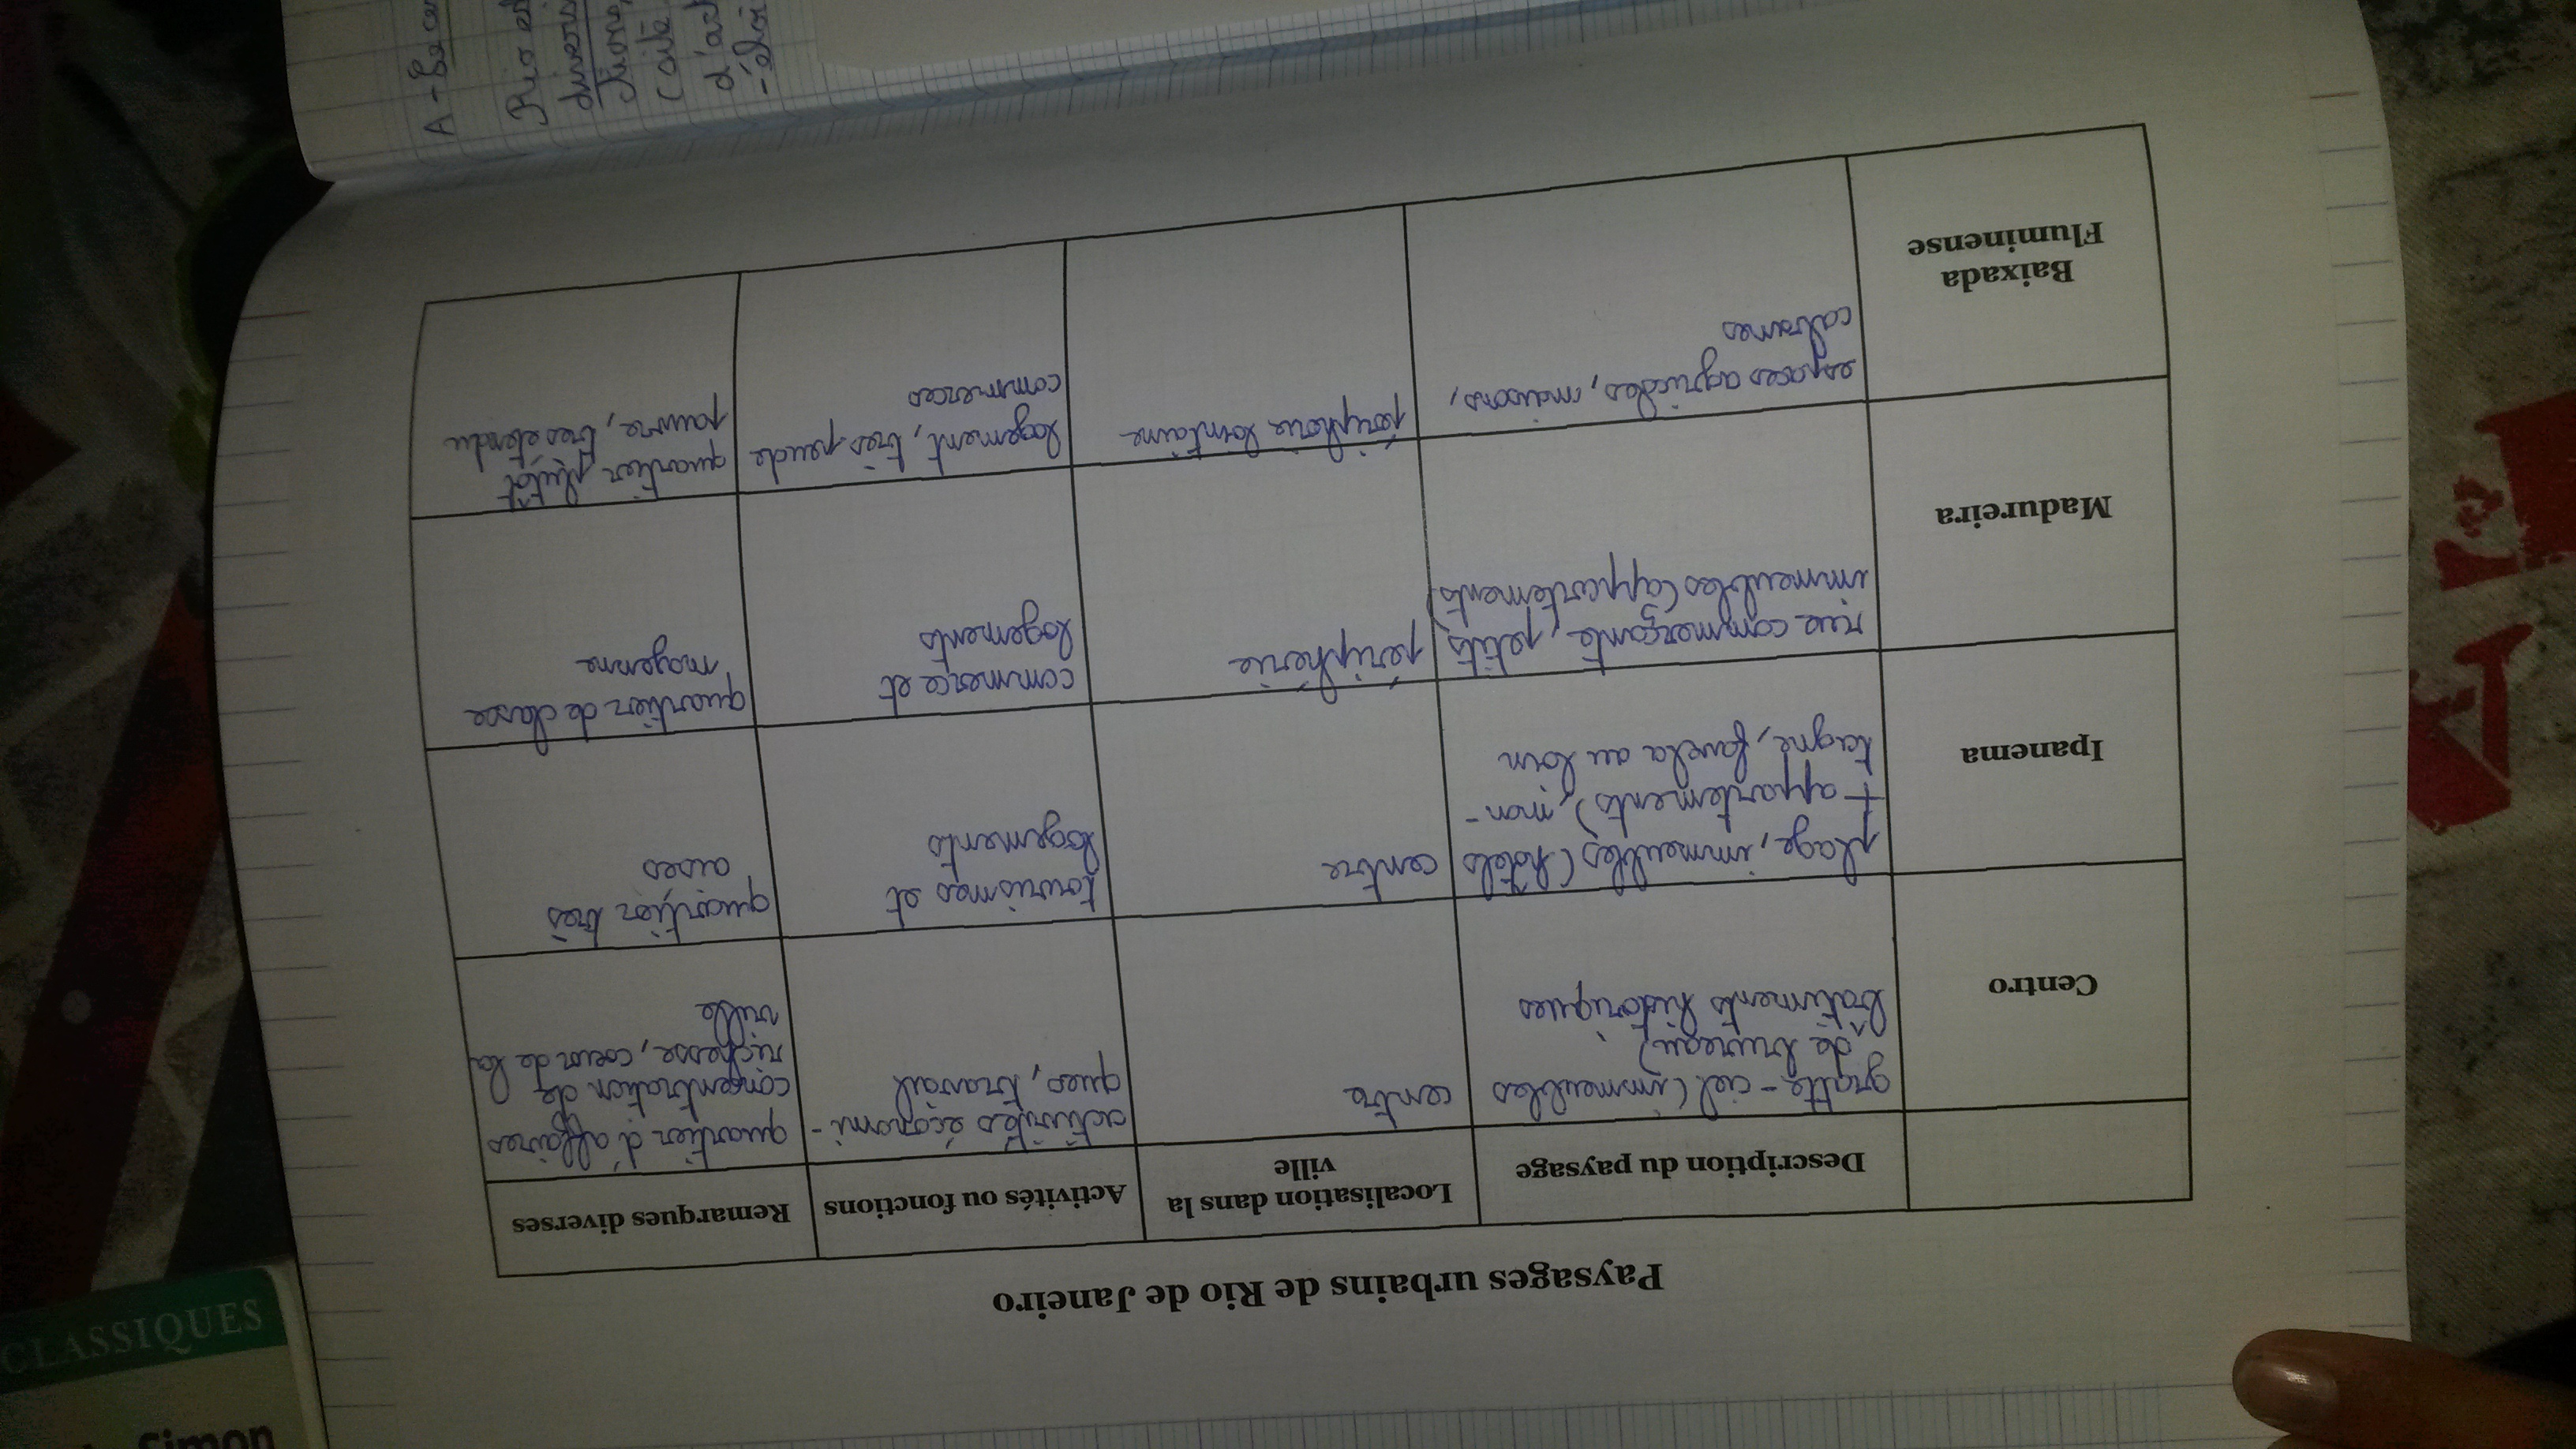 CLASSIQUES
Simon
Paysages urbains de Rio de Janeiro
Description du paysage
Localisation dans la
ville
Activités ou fonctions
Remarques diverses
Centro
gratte-ciel (immeubles
de bureau)
bâtiments historiques
centre
activités économi-
ques, travail
quartier d'affaires
concentration de
richesse, coeur de la
ville
Ipanema
plage, immeubles (hôtels
+ appartements), mon-
tagne, favela au loin
centre
tourismes et
logements
quartier très
aises
Madureira
rue commerçante, petits
immeubles (appartements)
périphérie
commerce et
logements
quartier de classe
moyenne
Baixada
Fluminense
espaces agricoles, maisons,
cabanes
périphérie lointaine
logement, très peu de
commerces
quartier plutôt
pauvre, très étendu
A -
Rio es
divers
tions,
d'act